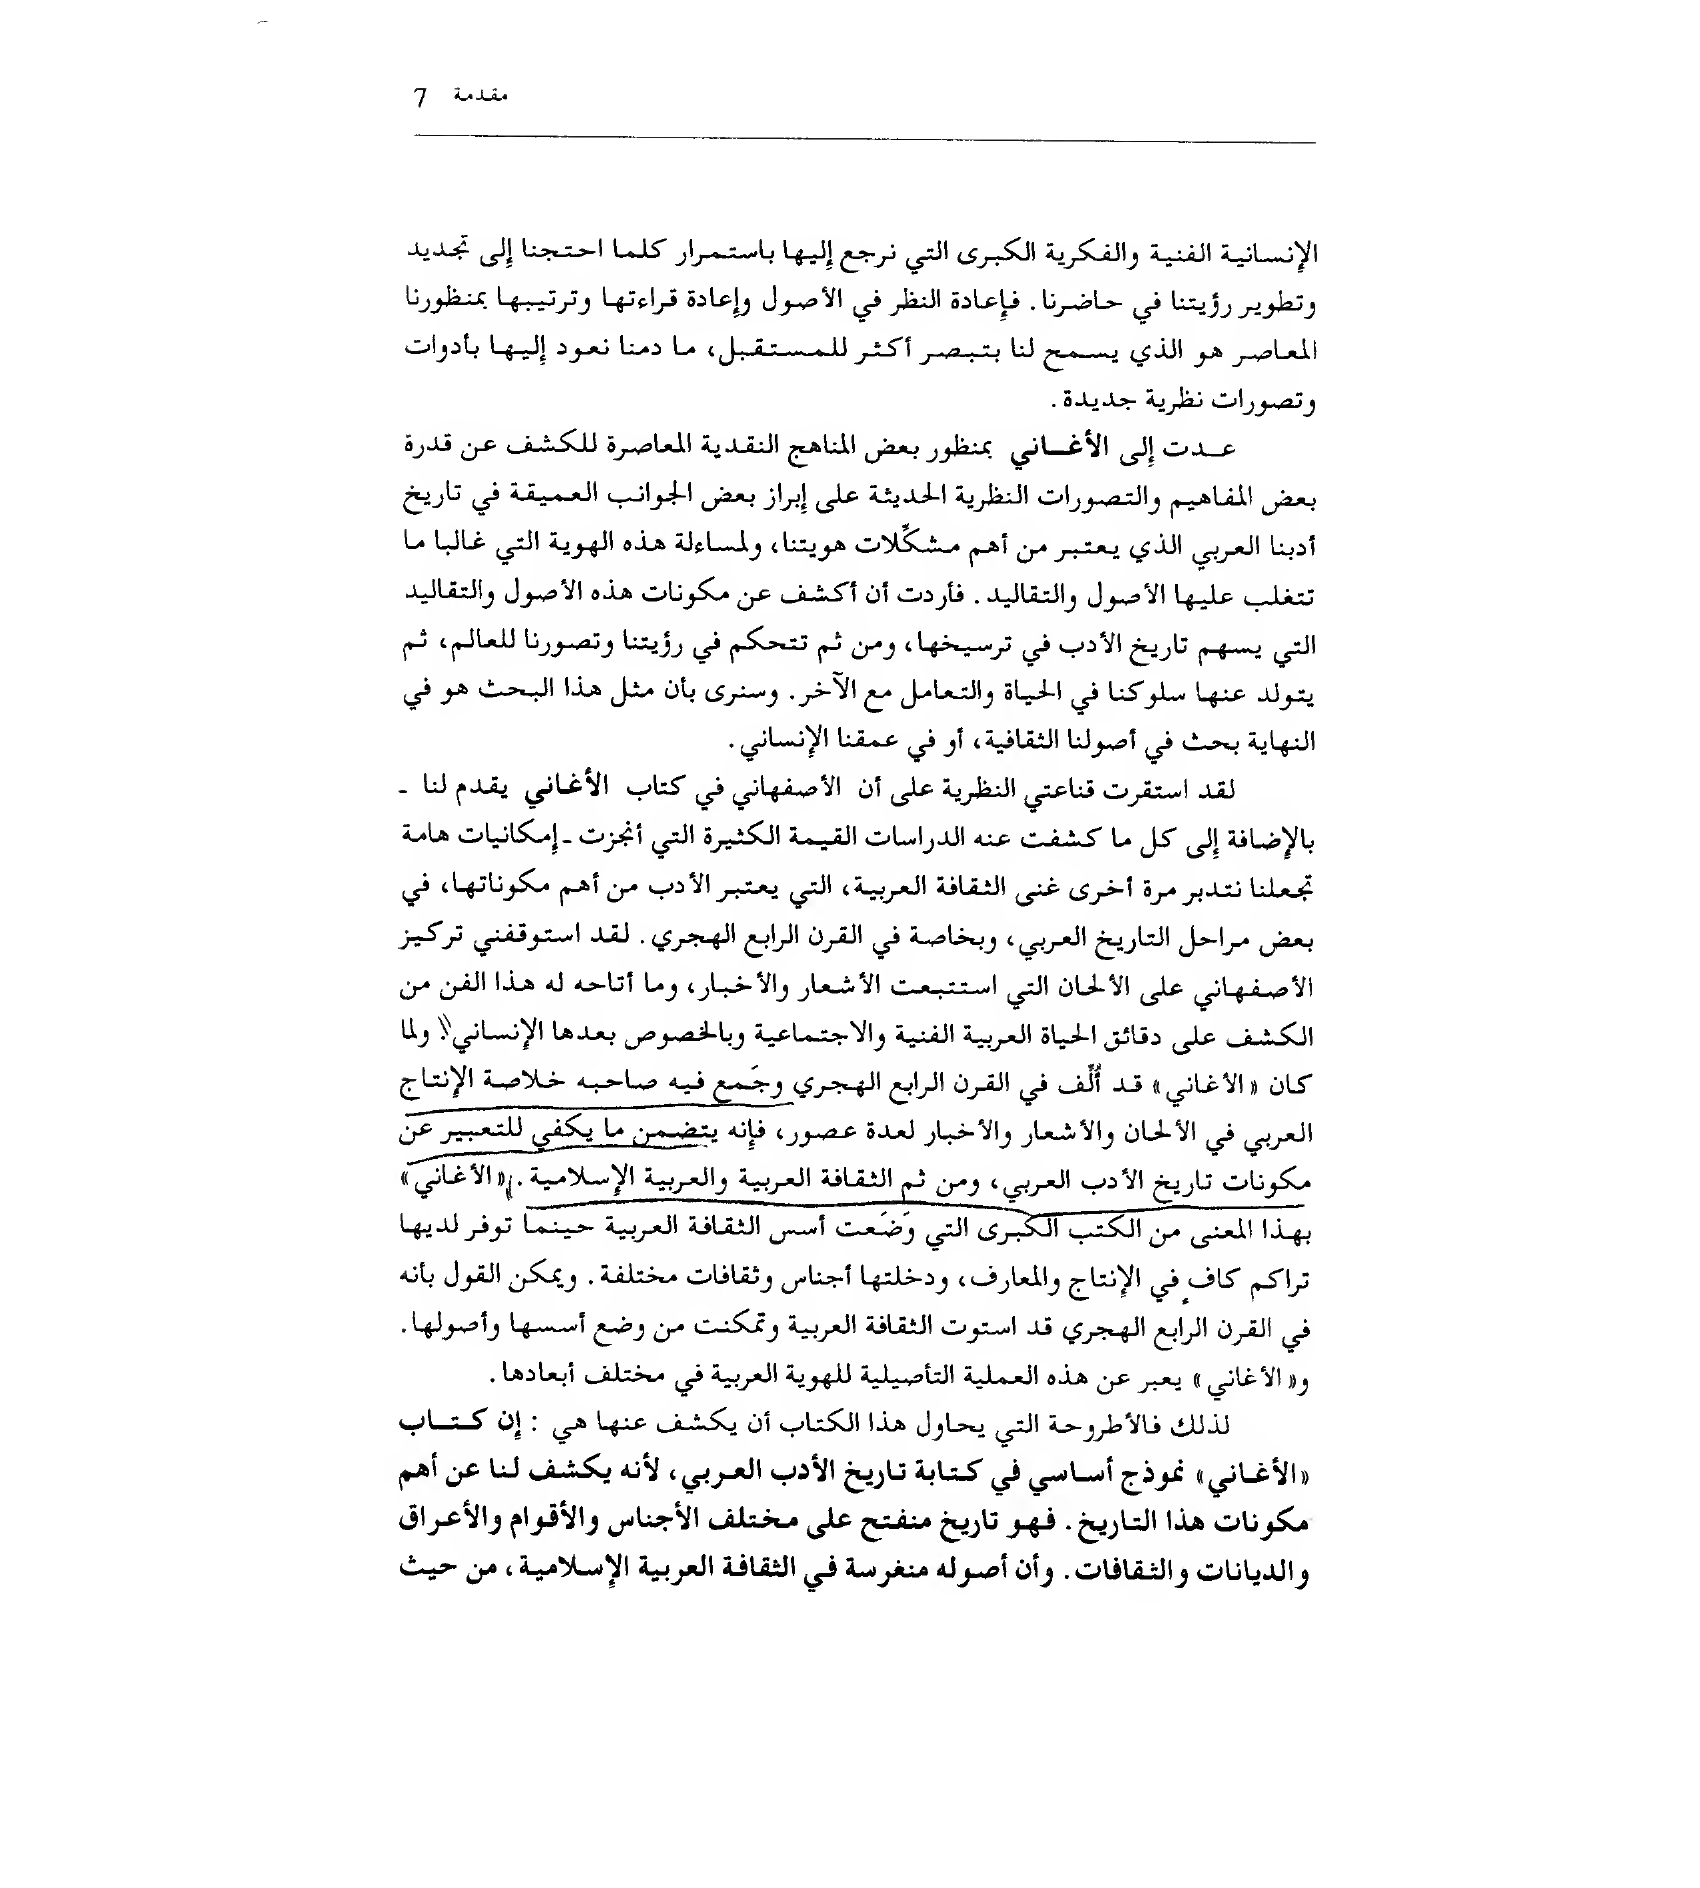 مقدمة 7
الإنسانية الفنية والفكرية الكبرى التي نرجع إليها باستمرار كلما احتجنا إلى تجديد
وتطوير رؤيتنا في حاضرنا. فإعادة النظر في الأصول وإعادة قراءتها وترتيبها بمنظورنا
المعاصر هو الذي يسمح لنا بتبصر أكثر للمستقبل، ما دمنا نعود إليها بأدوات
وتصورات نظرية جديدة.
عدت إلى الأغاني بمنظور بعض المناهج النقدية المعاصرة للكشف عن قدرة
بعض المفاهيم والتصورات النظرية الحديثة على إبراز بعض الجوانب العميقة في تاريخ
أدبنا العربي الذي يعتبر من أهم مشكِّلات هويتنا، ولمساءلة هذه الهوية التي غالبا ما
تتغلب عليها الأصول والتقاليد. فأردت أن أكشف عن مكونات هذه الأصول والتقاليد
التي يسهم تاريخ الأدب في ترسيخها، ومن ثم تتحكم في رؤيتنا وتصورنا للعالم، ثم
يتولد عنها سلوكنا في الحياة والتعامل مع الآخر. وسنرى بأن مثل هذا البحث هو في
النهاية بحث في أصولنا الثقافية، أو في عمقنا الإنساني.
لقد استقرت قناعتي النظرية على أن الأصفهاني في كتاب الأغاني يقدم لنا ـ
بالإضافة إلى كل ما كشفت عنه الدراسات القيمة الكثيرة التي أنجزت ـ إمكانيات هامة
تجعلنا نتدبر مرة أخرى غنى الثقافة العربية، التي يعتبر الأدب من أهم مكوناتها، في
بعض مراحل التاريخ العربي، وبخاصة في القرن الرابع الهجري. لقد استوقفني تركيز
الأصفهاني على الألحان التي استتبعت الأشعار والأخبار، وما أتاحه له هذا الفن من
الكشف على دقائق الحياة العربية الفنية والاجتماعية وبالخصوص بعدها الإنساني. ولما
كان «الأغاني» قد أُلِّف في القرن الرابع الهجري وجَمع فيه صاحبه خلاصة الإنتاج
العربي في الألحان والأشعار والأخبار لعدة عصور، فإنه يتضمن ما يكفي للتعبير عن
مكونات تاريخ الأدب العربي، ومن ثم الثقافة العربية والعربية الإسلامية. «الأغاني»
بهذا المعنى من الكتب الكبرى التي وَضَعت أسس الثقافة العربية حينما توفر لديها
تراكم كافٍ في الإنتاج والمعارف، ودخلتها أجناس وثقافات مختلفة. ويمكن القول بأنه
في القرن الرابع الهجري قد استوت الثقافة العربية وتمكنت من وضع أسسها وأصولها.
و«الأغاني» يعبر عن هذه العملية التأصيلية للهوية العربية في مختلف أبعادها.
لذلك فالأطروحة التي يحاول هذا الكتاب أن يكشف عنها هي : إن كتاب
«الأغاني» نموذج أساسي في كتابة تاريخ الأدب العربي، لأنه يكشف لنا عن أهم
مكونات هذا التاريخ. فهو تاريخ منفتح على مختلف الأجناس والأقوام والأعراق
والديانات والثقافات. وأن أصوله منغرسة في الثقافة العربية الإسلامية، من حيث